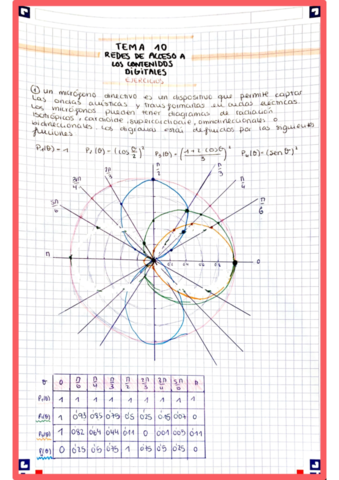 TEMA 10
REDES DE ACCESO A
LOS CONTENIDOS
DIGITALES
EJERCICIOS
① un micrófono directivo es un dispositivo que permite captar
las ondas acústicas y transformarlas en ondas eléctricas.
Los micrófonos pueden tener diagramas de radiación
isotrópicos, cardioide, supercardioide, omnidireccionales o
bidireccionales. Los diagramas están definidos por las siguientes
funciones
P₁(θ) = 1 P₂(θ) = (cos θ/2)² P₃(θ) = (1+2 cosθ/3)² P₄(θ) = (sen θ)²
π/2
π/3
π/4
π/6
3π/4
5π/6
π
0
θ 0 π/6 π/4 π/3 π/2 2π/3 3π/4 5π/6 π
1 1 1 1 1 1 1 1 1
1 0'93 0'85 0'75 0'5 0'25 0'15 0'07 0
1 0'82 0'64 0'44 0'11 0 0'11
0 0'25 0'5 0'75 1 0'75 0'5 0'25 0